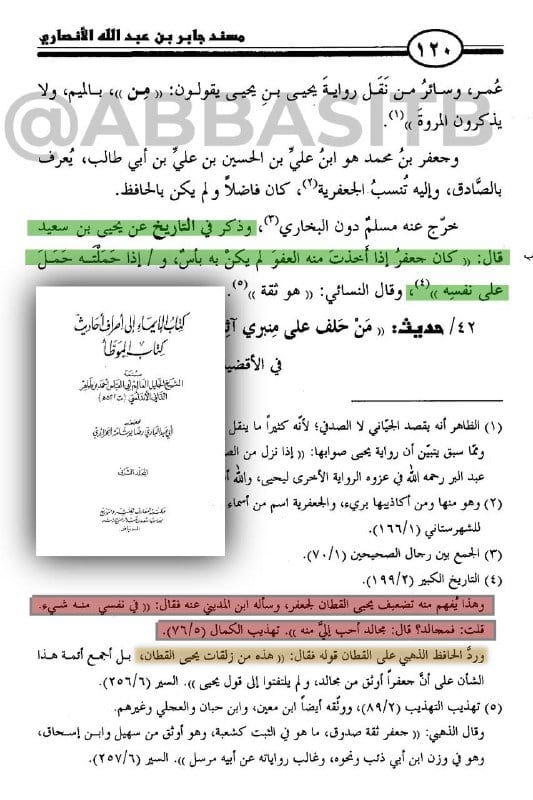 مسند جابر بن عبد الله الأنصاري
١٢٠
@ABBASITB
عُمر، وسائرُ من نَقَل روايةَ يحيى بنِ يحيى يقولون: «مِن»، بالميم، ولا
يذكرون المروةَ»(١).
وجعفر بنُ محمد هو ابنُ عليِّ بن الحسين بن عليِّ بن أبي طالب، يُعرف
بالصَّادق، وإليه تُنسبُ الجعفرية(٢)، كان فاضلاً ولم يكن بالحافظ.
خرّج عنه مسلمٌ دون البخاري(٣)، وذكر في التاريخ عن يحيى بن سعيد
قال: «كان جعفرُ إذا أخذتَ منه العفوَ لم يكنْ به بأسٌ، و / إذا حَمَلْتَه حَمَلَ
ب
على نفسِه»(٤)، وقال النسائي: «هو ثقة»(٥).
٤٢/ حديث: «مَنْ حَلف على مِنبري آثِ
في الأقضي
كتاب الإيماء إلى أطراف أحاديث
كتاب الموطأ
(١) الظاهر أنه يقصد الجيّاني لا الصدفي؛ لأنه كثيراً ما ينقل
وممّا سبق يتبيّن أن رواية يحيى صوابها: «إذا نزل من الص
عبد البر رحمه الله في عزوه الرواية الأخرى ليحيى، والله أ
(٢) وهو منها ومن أكاذيبها بريء، والجعفرية اسم من أسماء
للشهرستاني (١٦٦/١).
(٣) الجمع بين رجال الصحيحين (٧٠/١).
(٤) التاريخ الكبير (١٩٩/٢).
وهذا يُفهم منه تضعيف يحيى القطان لجعفر، وسأله ابن المديني عنه فقال: «في نفسي منه شيء.
قلت: فمجالد؟ قال: مجالد أحب إليَّ منه». تهذيب الكمال (٧٦/٥).
وردَّ الحافظ الذهبي على القطان قوله فقال: «هذه من زلقات يحيى القطان، بل أجمع أئمة هذا
الشأن على أنَّ جعفراً أوثق من مجالد، ولم يلتفتوا إلى قول يحيى». السير (٢٥٦/٦).
(٥) تهذيب التهذيب (٨٩/٢)، ووثّقه أيضاً ابن معين، وابن حبان والعجلي وغيرهم.
وقال الذهبي: «جعفر ثقة صدوق، ما هو في الثبت كشعبة، وهو أوثق من سهيل وابن إسحاق،
وهو في وزن ابن أبي ذئب ونحوه، وغالب رواياته عن أبيه مرسل». السير (٢٥٧/٦).